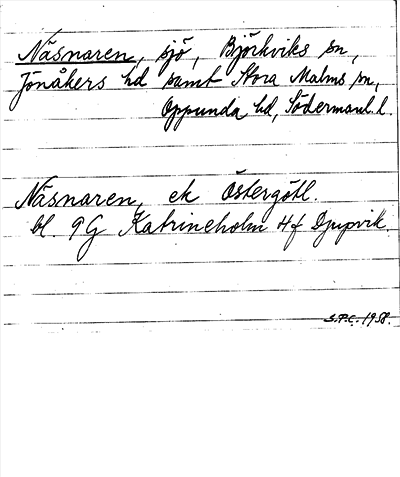 Näsnaren, sjö, Björkviks sn,
Jönåkers hd samt Stora Malms sn,
Oppunda hd, Södermanl. l.
Näsnaren, ek Östergötl.
bl. 9G Katrineholm 4f Djupvik.
S.P.C. 1958.